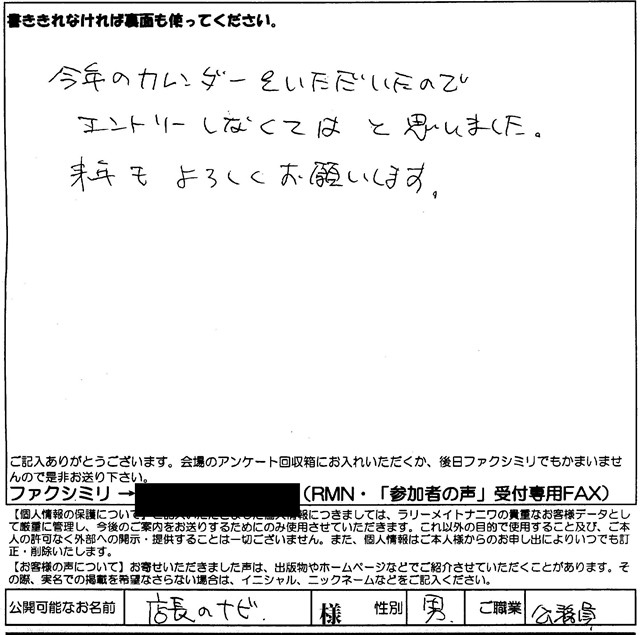 書ききれなければ裏面も使ってください。
今年のカレンダーをいただいたので
エントリーしなくてはと思いました。
来年もよろしくお願いします。
ご記入ありがとうございます。会場のアンケート回収箱にお入れいただくか、後日ファクシミリでもかまいませ
んので是非お送り下さい。
ファクシミリ→ （RMN・「参加者の声」受付専用FAX）
【個人情報の保護について】ご記入いただきました個人情報につきましては、ラリーメイトナニワの貴重なお客様データとし
て厳重に管理し、今後のご案内をお送りするためにのみ使用させていただきます。これ以外の目的で使用すること及び、ご本
人の許可なく外部への開示・提供することは一切ございません。また、個人情報はご本人様からのお申し出によりいつでも訂
正・削除いたします。
【お客様の声について】お寄せいただきました声は、出版物やホームページなどでご紹介させていただくことがあります。そ
の際、実名での掲載を希望なさらない場合は、イニシャル、ニックネームなどをご記入ください。
公開可能なお名前 店長のナビ 様 性別 男. ご職業 公務員